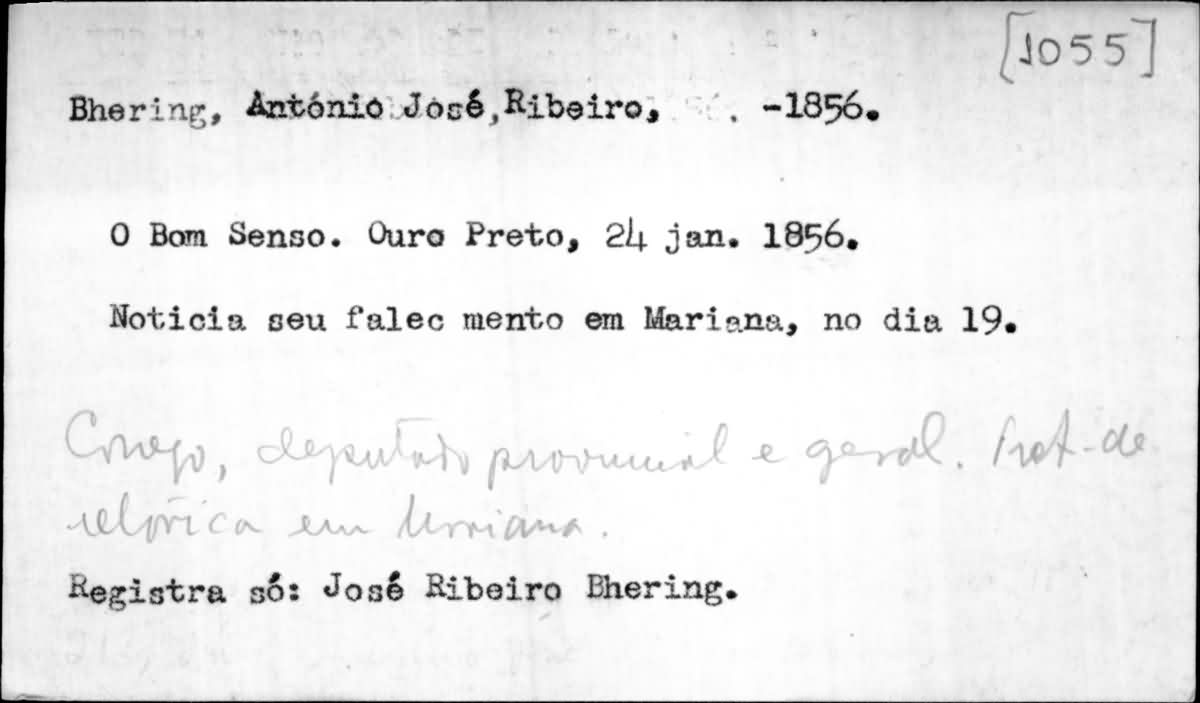 [1055]
Bhering, António José, Ribeiro, . -1856.
O Bom Senso. Ouro Preto, 24 jan. 1856.
Noticia seu falec mento em Mariana, no dia 19.
Conego, deputado provincial e geral. Prof. de
retórica em Mariana.
Registra só: José Ribeiro Bhering.